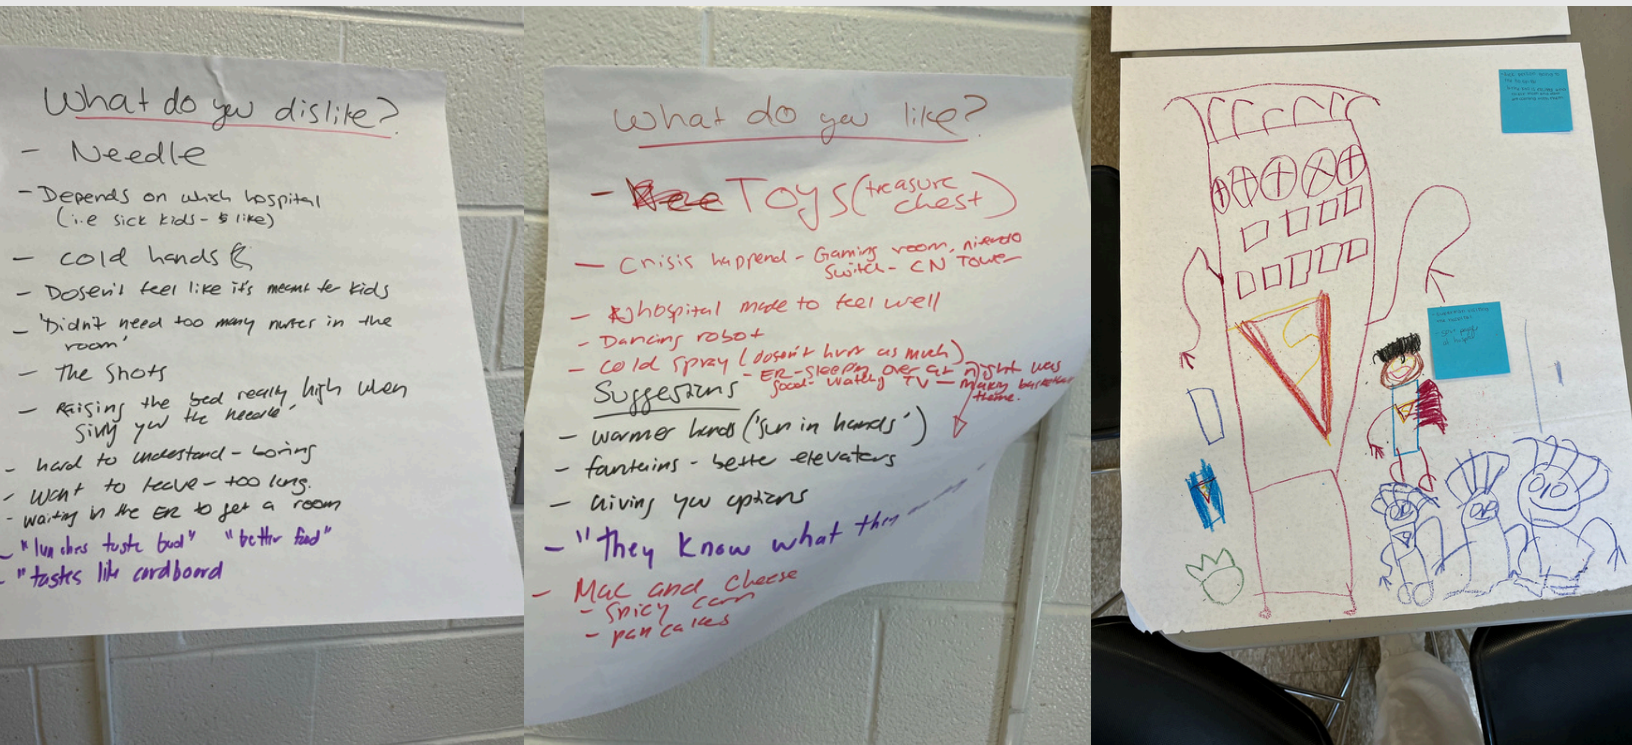 What do you dislike?
- Needle
- Depends on which hospital
(i.e sick kids - like)
- cold hands
- Dosen't feel like it's meant for kids
- 'Didn't need too many nurses in the
room'
- The shots
- Raising the bed really high when
you the needle'
- hard to understand - boring
- Want to leave - too long.
- waiting in the ER to get a room
- "lunches taste bad" "better food"
- "tastes like cardboard
What do you like?
- Toys (treasure
chest)
- Crisis happend - Gaming room, nintendo
Switch - CN Tower
- hospital made to feel well
- Dancing robot
- cold spray (doesn't hurt as much)
- ER - sleeping over at night was
good - watching TV - making
theme.
Suggestions
- warmer hands ('sun in hands')
- fountains - better elevators
- Giving you options
- "They know what they
- Mac and cheese
- spicy corn
- pancakes
S
- Superman visiting
the hospital